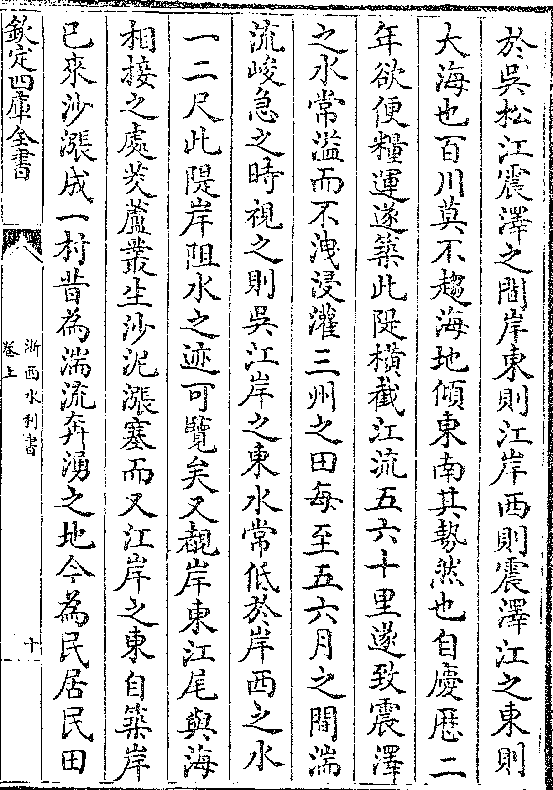 於吳松江震澤之間岸東則江岸西則震澤江之東則
大海也百川莫不趨海地傾東南其勢然也自慶厯二
年欲便糧運遂築此隄橫截江流五六十里遂致震澤
之水常溢而不洩浸灌三州之田每至五六月之間湍
流峻急之時視之則吳江岸之東水常低於岸西之水
一二尺此隄岸阻水之迹可覽矣又覩岸東江尾與海
相接之處茭蘆叢生沙泥漲塞而又江岸之東自築岸
已來沙漲成一村昔為湍流奔湧之地今為民居民田
欽定四庫全書
浙西水利書
卷上
十